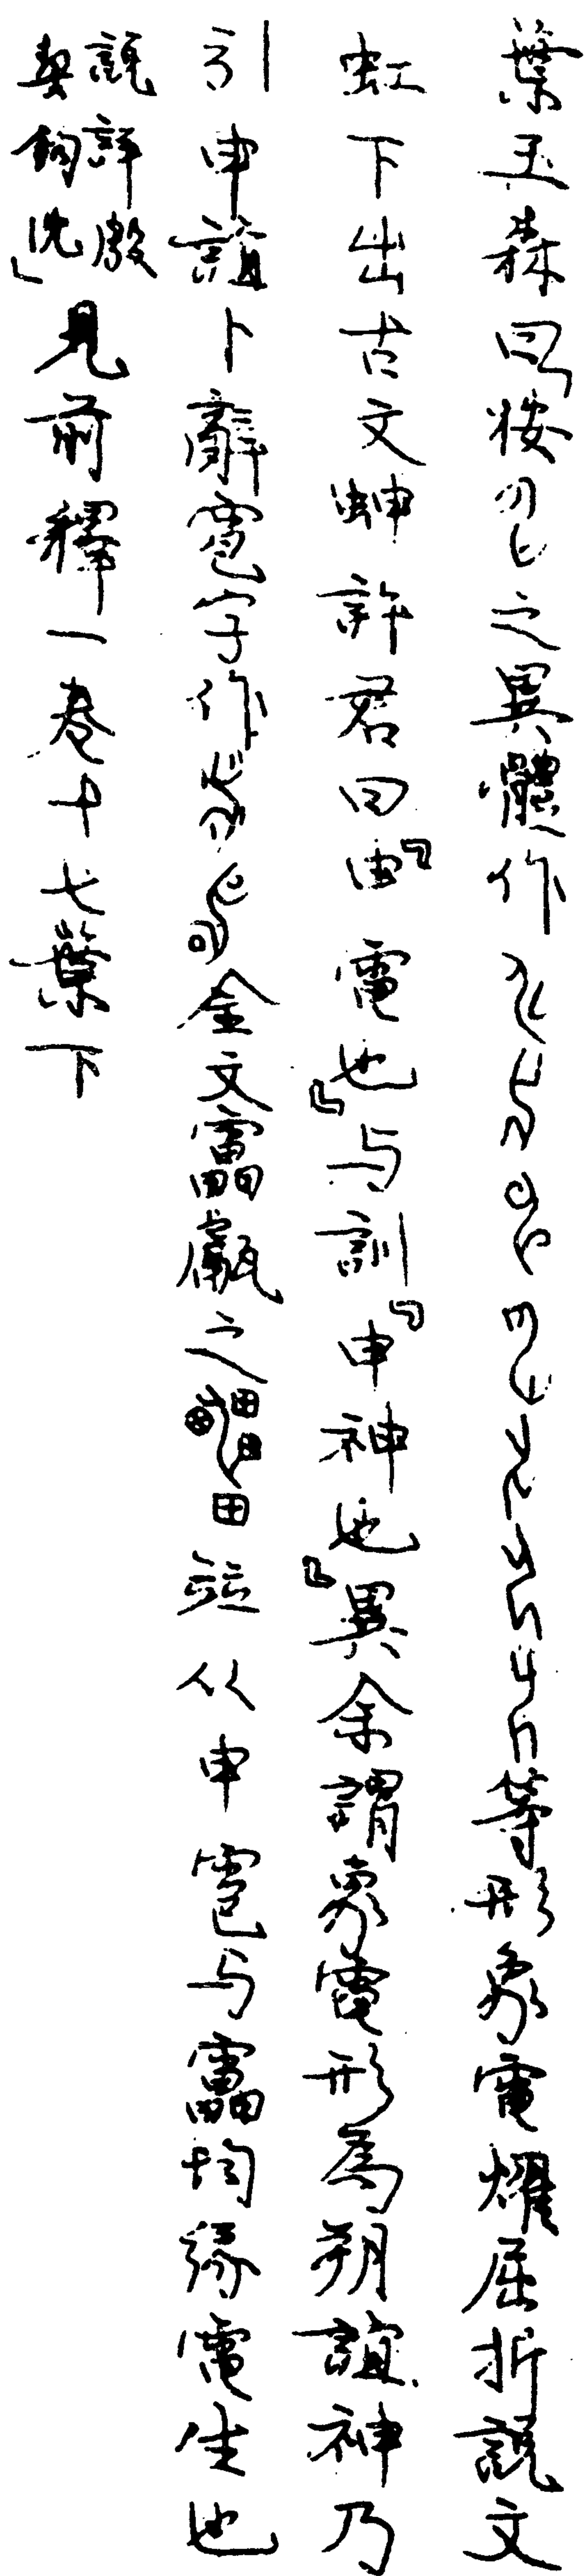 葉玉森曰按之異體作等形象電燿屈折説文
虹下出古文𧌝許君曰『申電也』与訓『申神也』異余謂象電形為朔誼神乃
引申誼卜辭雹字作金文靁甗之田竝从申雹与靁均緣電生也
説詳殷契鉤沈」見前釋一卷十七葉下